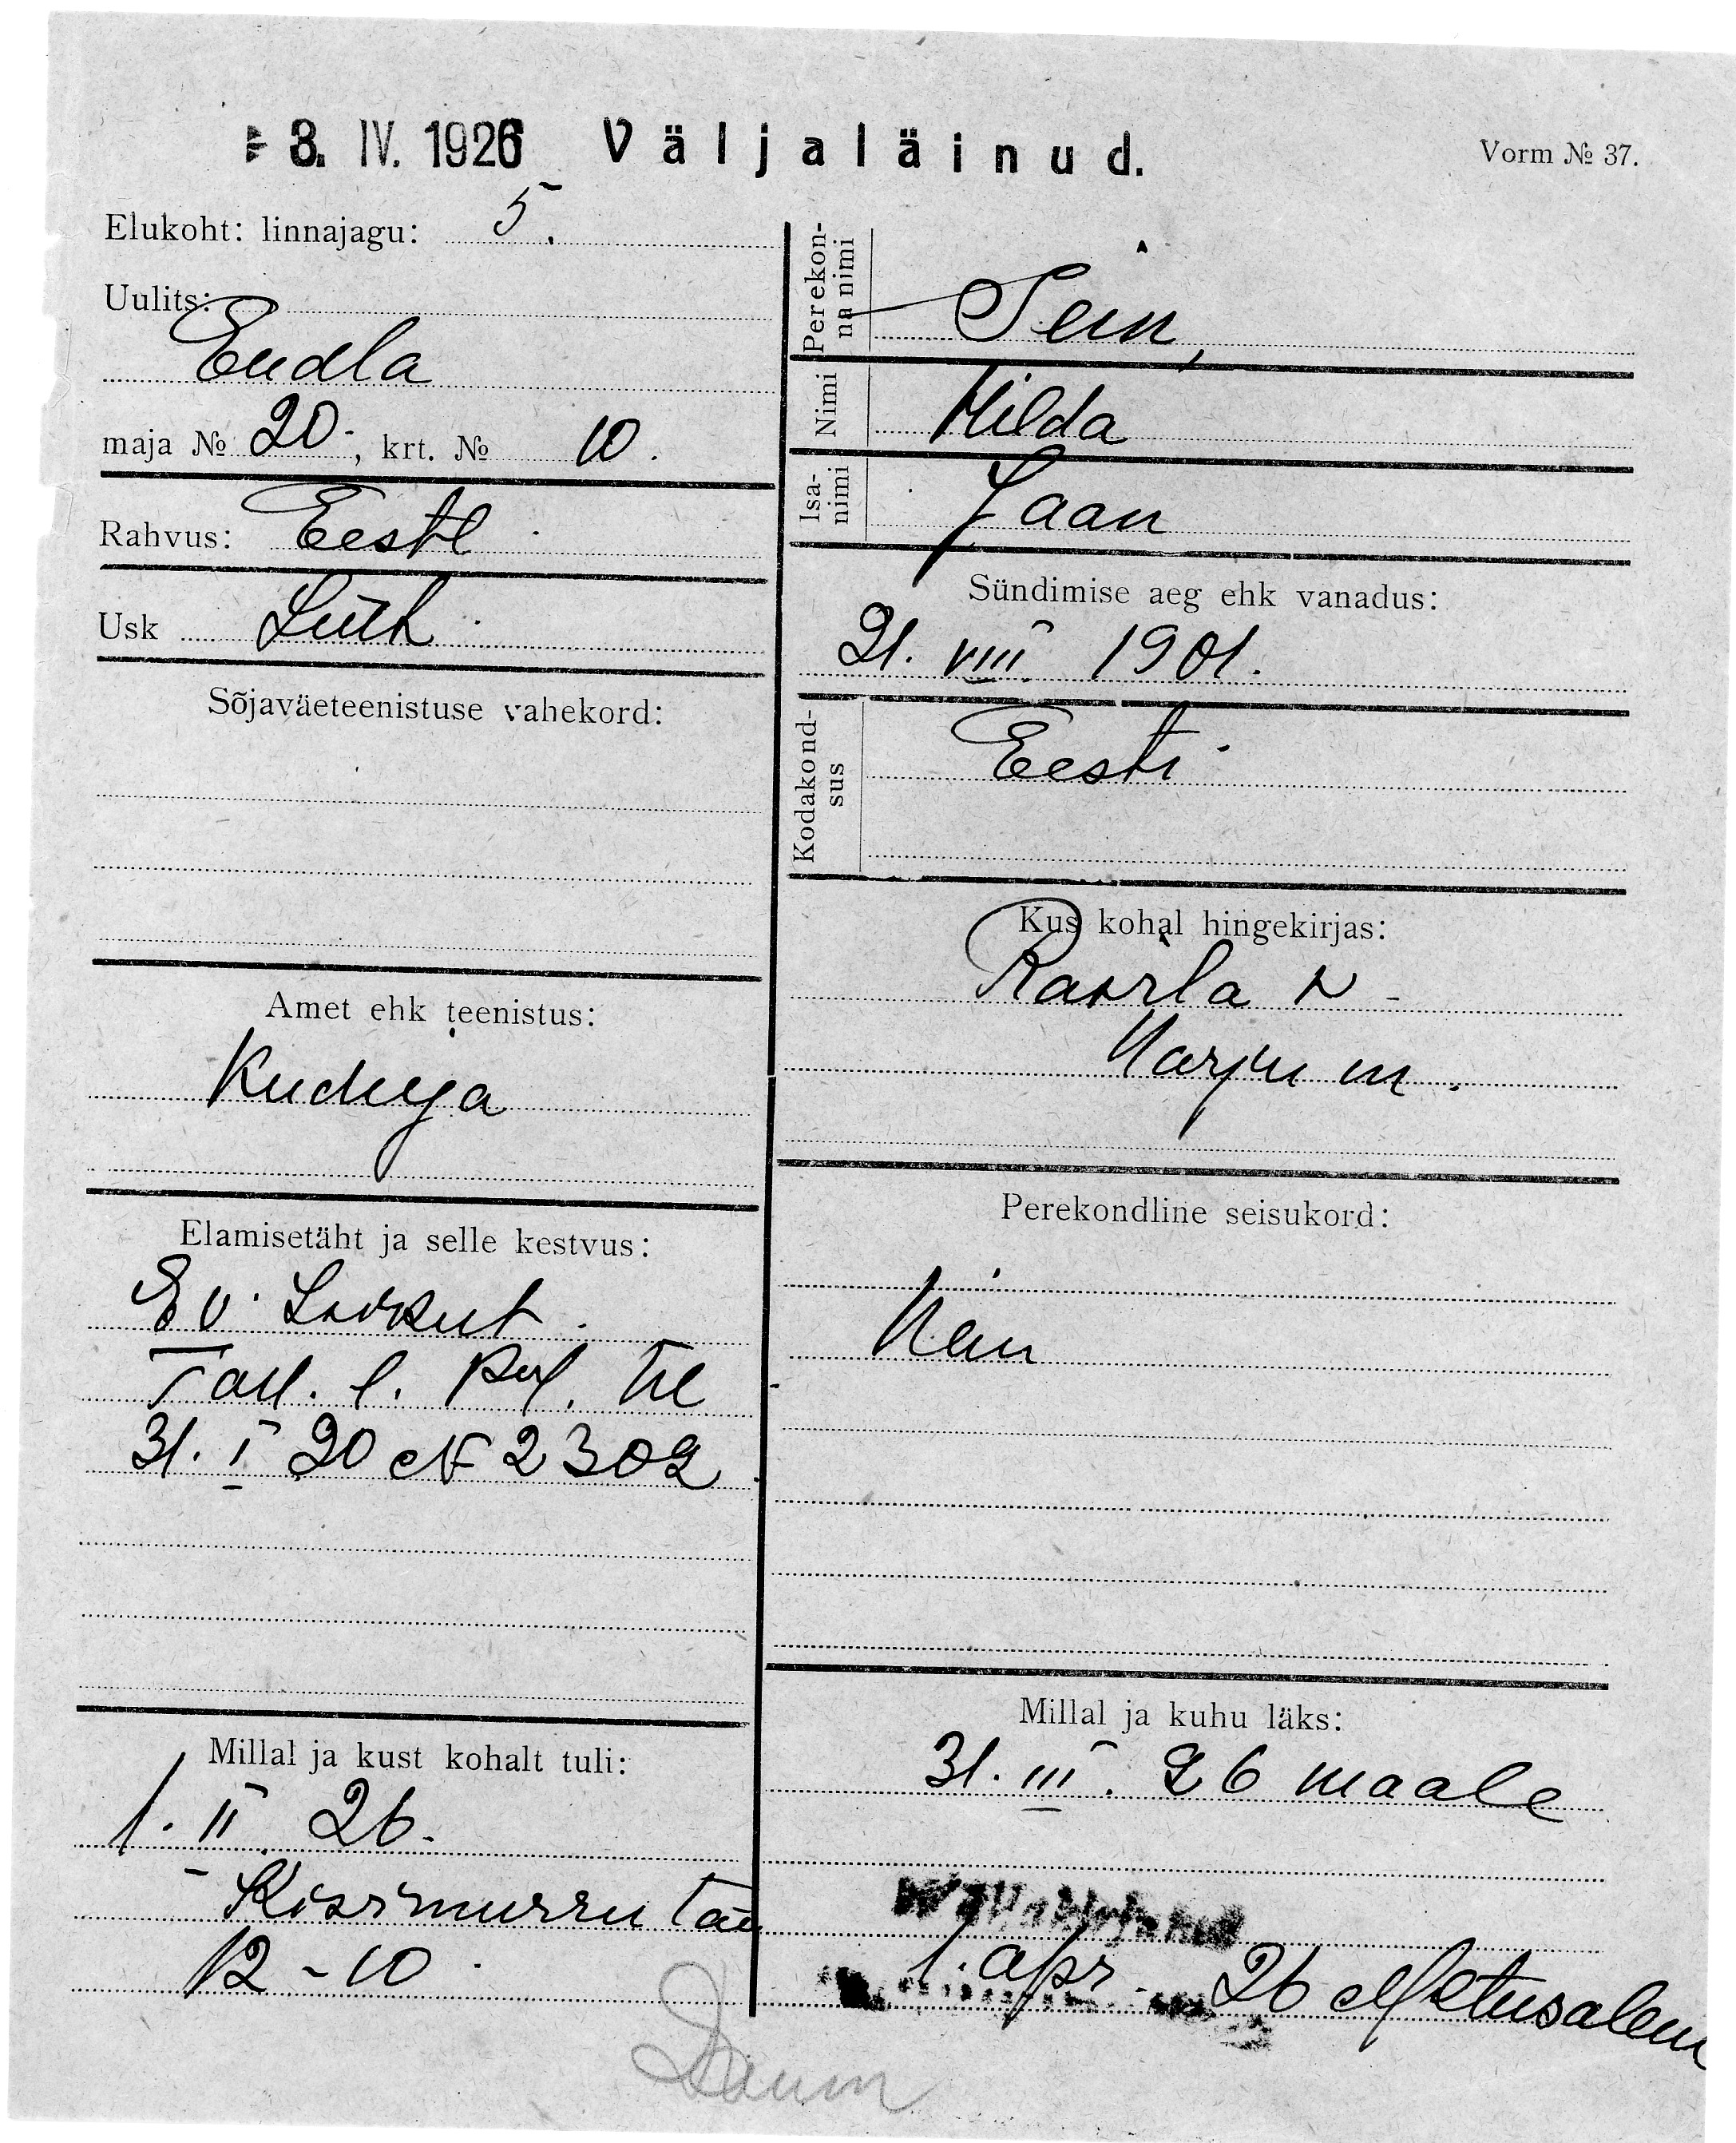 3. IV. 1926 Väljaläinud.
Vorm № 37.
Elukoht: linnajagu: 5.
Uulits:
Endla
maja № 20, krt. № 10.
Rahvus: Eesti
Usk Luth
Sõjaväeteenistuse vahekord:
Amet ehk teenistus:
Kuduja
Elamisetäht ja selle kestvus:
Ev. Isikut
Tall. l. Pol.
31. I 20 № 2302
Millal ja kust kohalt tuli:
1. II 26.
Kissimurru tän
12-10
Perekon-
na nimi
Sein,
Nimi Hilda
Isa-
nimi
Jaan
Sündimise aeg ehk vanadus:
21. VIII 1901.
Kodakond-
sus
Eesti
Kus kohal hingekirjas:
Rasila v
Harju m.
Perekondline seisukord:
Nein
Millal ja kuhu läks:
31. III. 26 maale
1. apr. 26 Metusalem